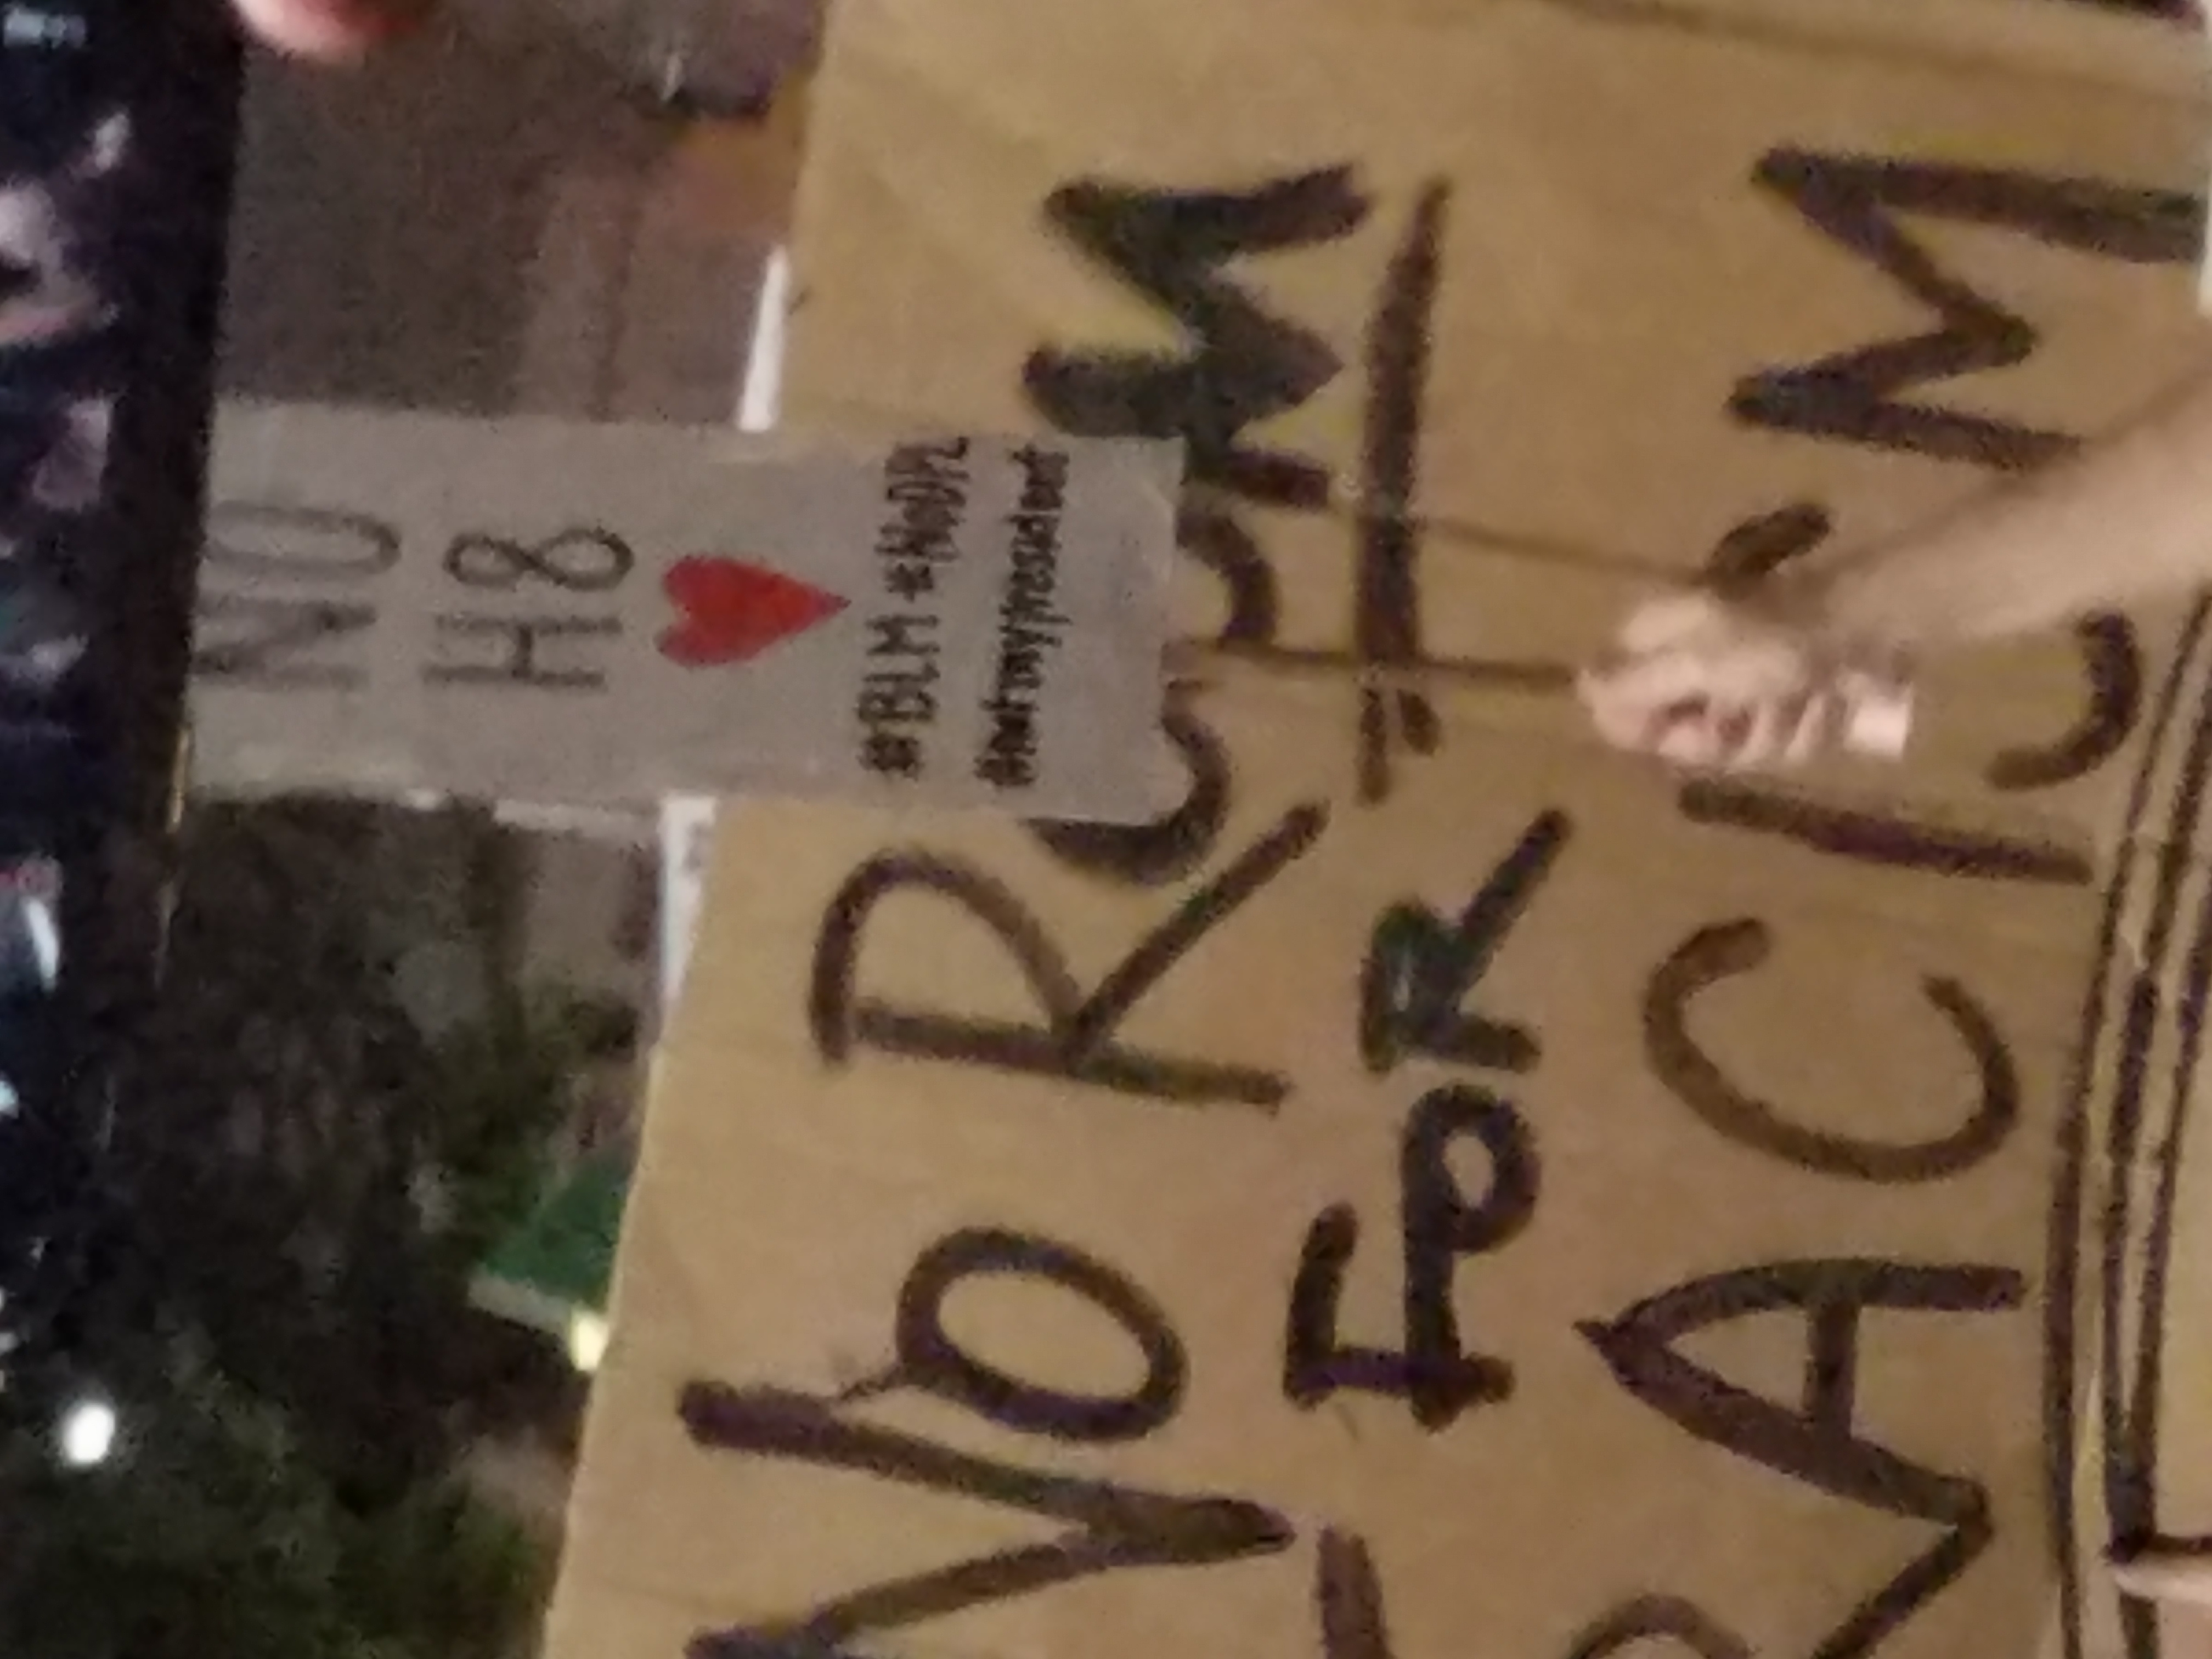 NO
H8
#BLM #NoDPL
#notmypresident
No RooM
FoR
RACISM